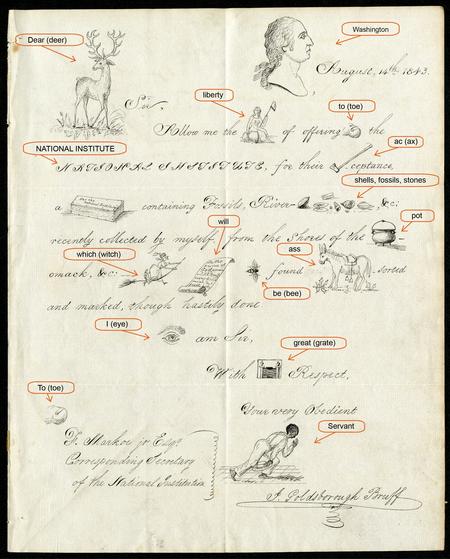 Dear (deer)
Washington
August, 14th 1843.
liberty
to (toe)
Sir,
Allow me the of offering the
NATIONAL INSTITUTE
ac (ax)
NATIONAL INSTITUTE, for their ceptance,
shells, fossils, stones
a containing Fossils, River- &c:
will
pot
recently collected by myself, from the shores of the
which (witch)
ass
omack, &c:- found sorted
be (bee)
and marked, though hastily done.
I (eye)
am Sir,
great (grate)
With Respect,
To (toe)
Your very Obedient
Servant
F. Markoe jr. Esqr.
Corresponding Secretary
of the National Institution
J. Goldsborough Bruff